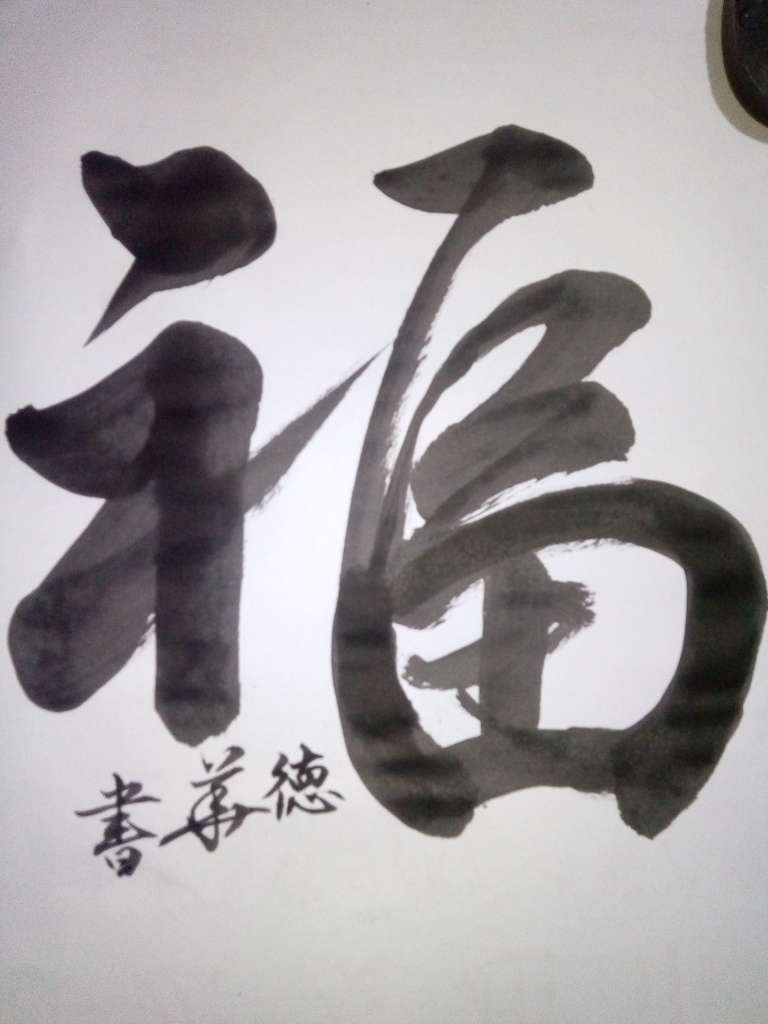 福
德華書